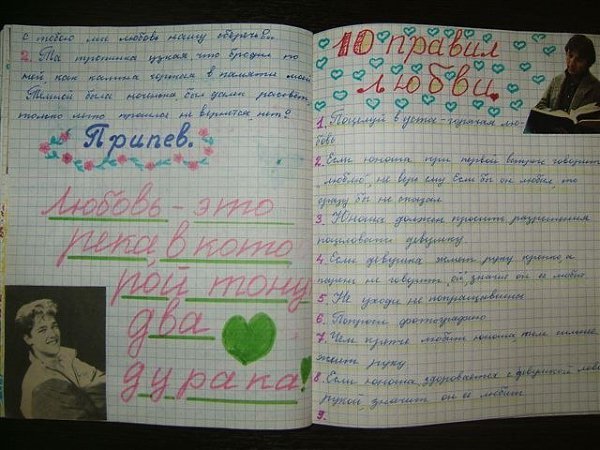 с тобою мы любовь нашу сберечь?..
2. Та тропинка узкая, что бродил по
ней, как калина горькая в памяти моей
Темной была ноченька, был дами рассвет
только лето прошло не вернется нет?
Припев.
Любовь - это
река, в кото
рой тону
два
дурака!
10 правил
любви.
1. Поцелуй в уста - горячая лю-
бовь
2. Если юноша при первой встрече говорит
"люблю", не верь ему. Если бы он любил, то
сразу бы не сказал
3. Юноша должен просить разрешения
поцеловать девушку.
4. Если девушка жмет руку крепко, а
парень не говорит "ой", значит он ее любит
5. Не уходи не попрощавшись
6. Попроси фотографию
7. Чем крепче любит юноша тем сильнее
жмет руку
8. Если юноша здоровается с девушкой лев
рукой значит он ее любит
9.